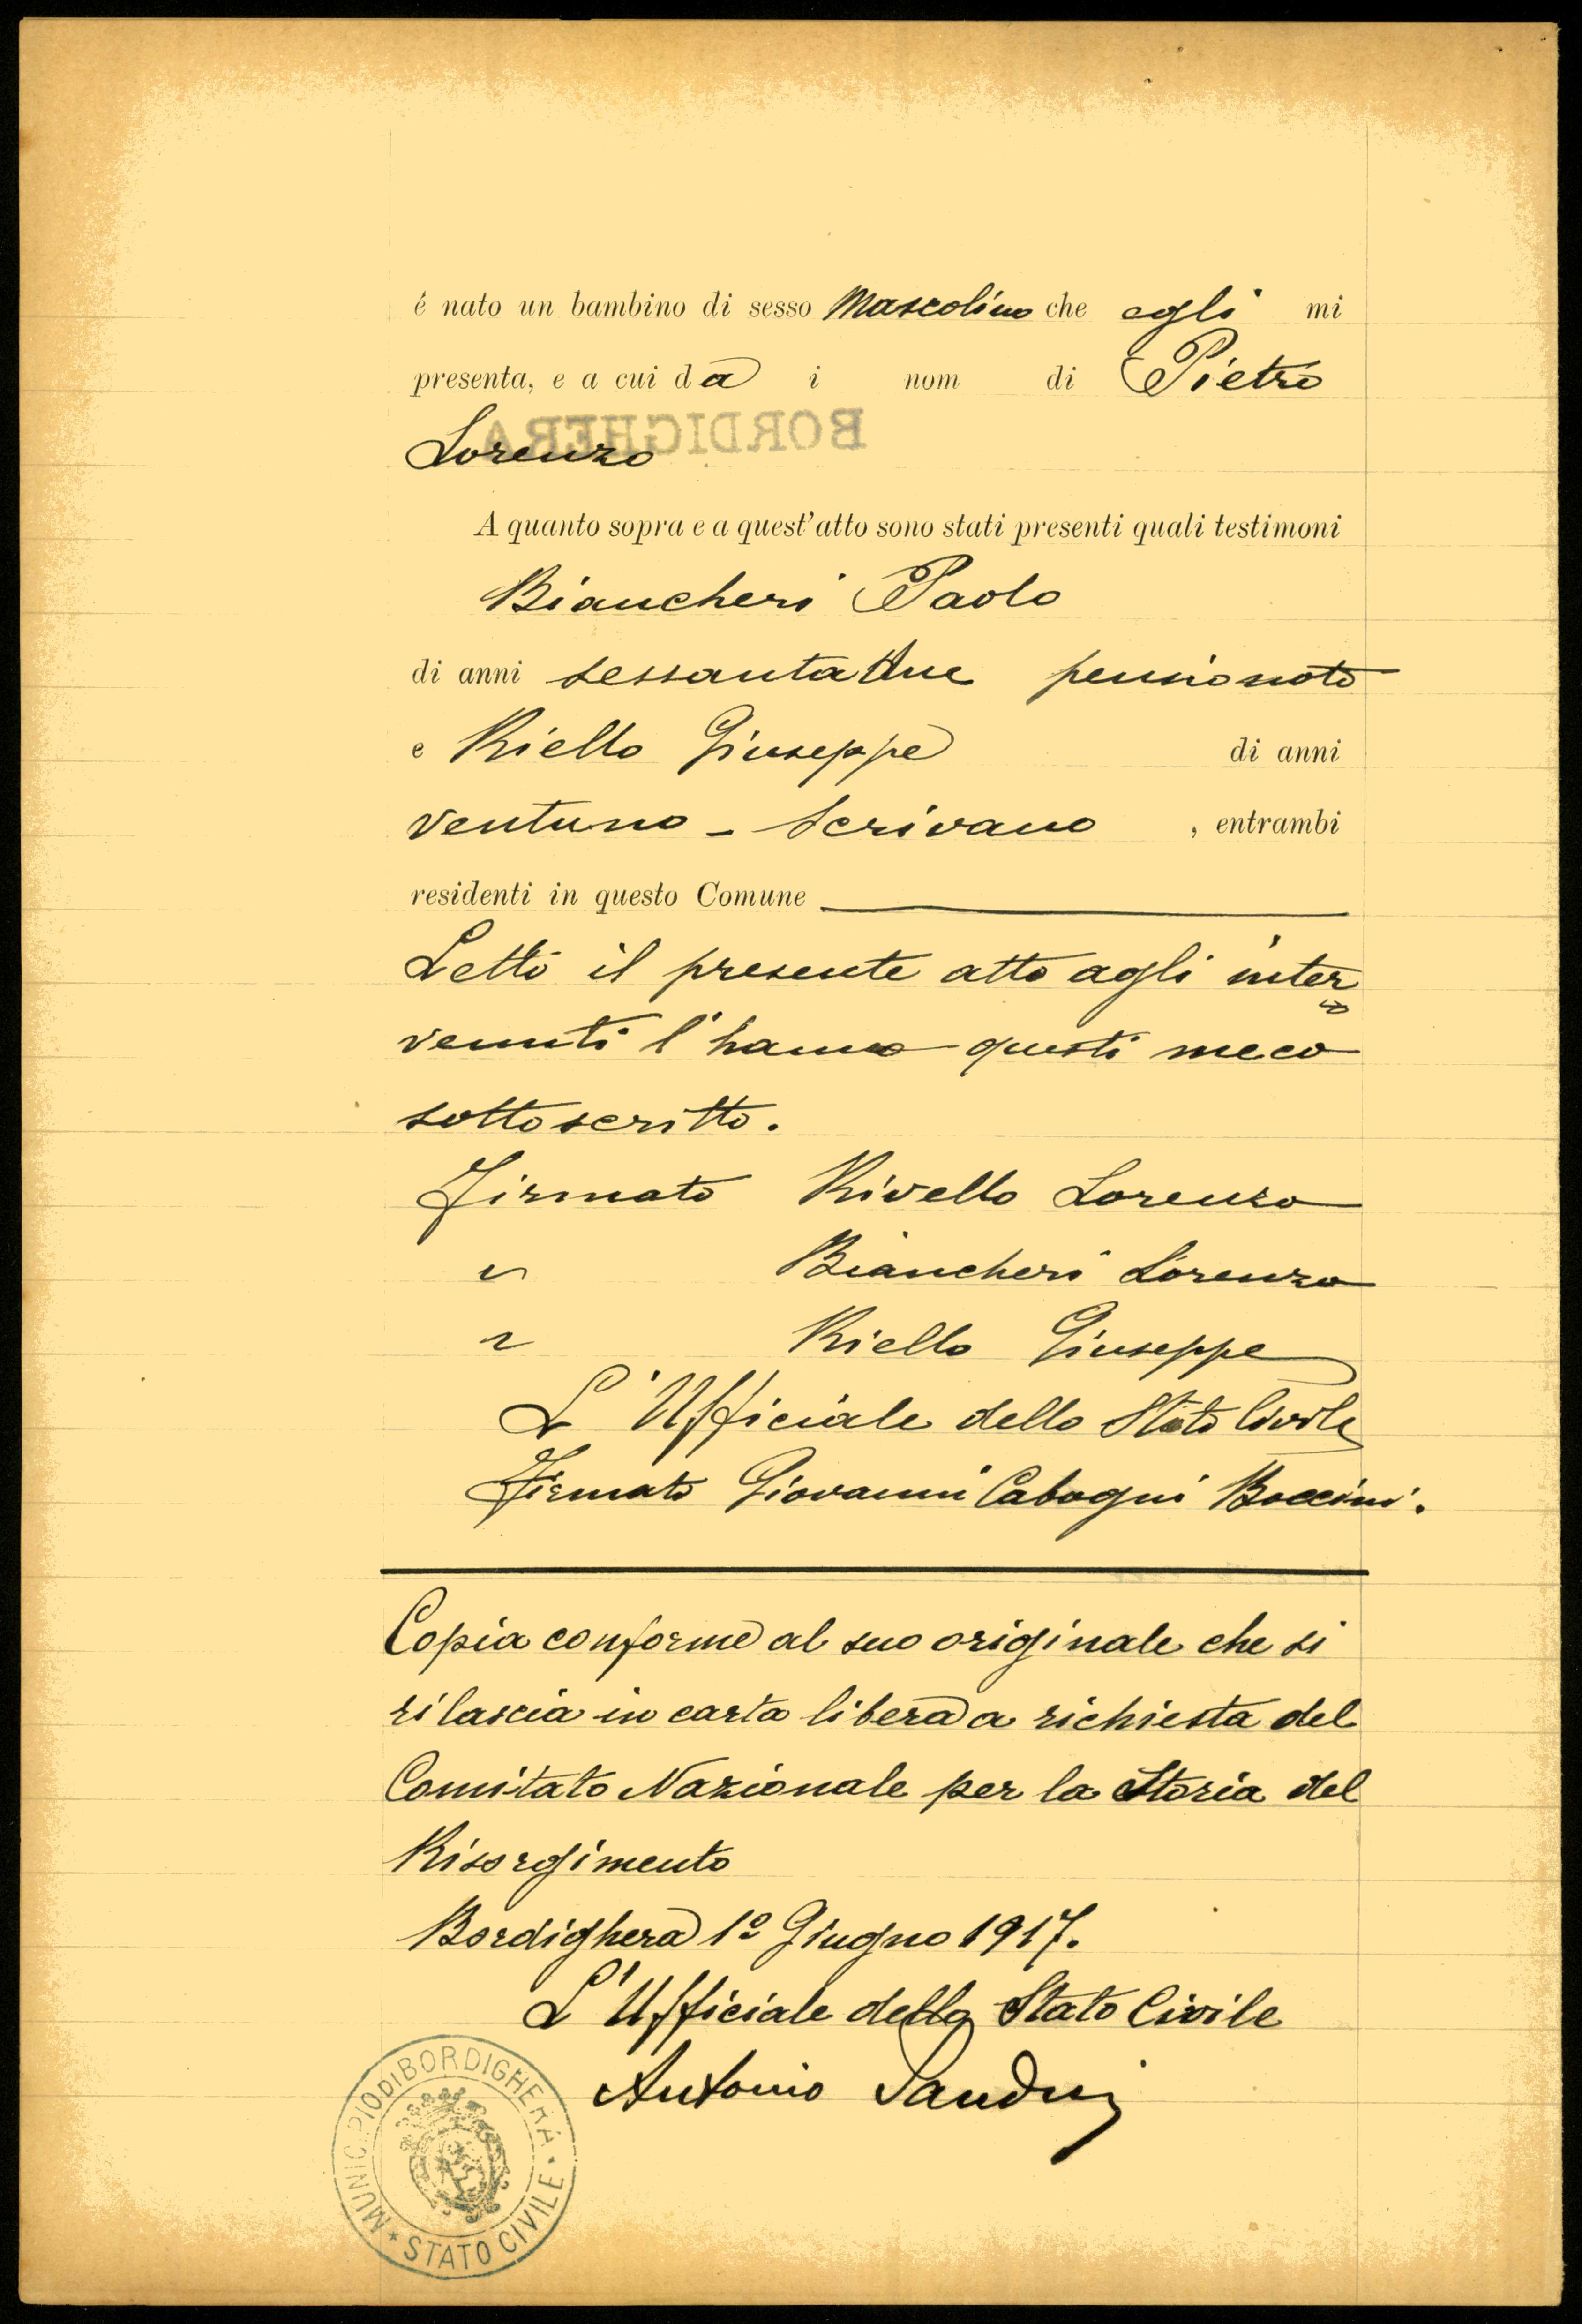 é nato un bambino di sesso Mascolino che egli mi
presenta, e a cui da i nom di Pietro
BORDIGHERA
Lorenzo
A quanto sopra e a quest'atto sono stati presenti quali testimoni
Biancheri Paolo
di anni sessantadue pensionato
e Riello Giuseppe di anni
ventuno - scrivano , entrambi
residenti in questo Comune
Letto il presente atto agli inter
venuti l'hanno questi meco
sottoscritto.
Firmato Rivello Lorenzo
" Biancheri Lorenzo
" Riello Giuseppe
L'Ufficiale dello Stato Civile
Firmato Giovanni Cabagni Baccini.
Copia conforme al suo originale che si
rilascia in carta libera a richiesta del
Comitato Nazionale per la Storia del
Risorgimento
Bordighera 1º Giugno 1917.
L'Ufficiale dello Stato Civile
Antonio
MUNICIPIO DI BORDIGHERA * STATO CIVILE *